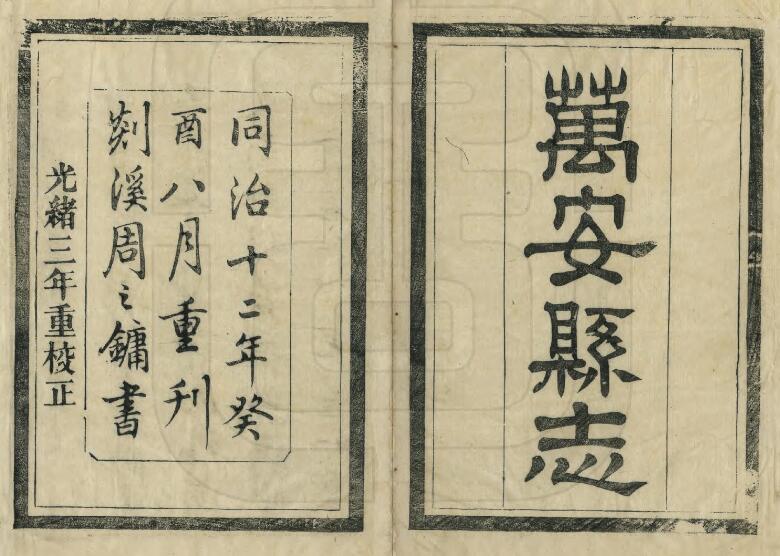 萬安縣志
同治十二年癸
酉八月重刊
剡溪周之鏞書
光緒三年重校正